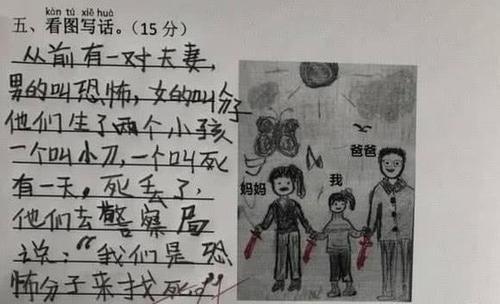 kàn tú xiě huà
五、看图写话。(15 分)
从前有一对夫妻,
男的叫恐怖,女的叫分子
他们生了两个小孩
一个叫小刀,一个叫死
有一天,死丢了,
他们去警察局
说:“我们是恐
怖分子来找死的”
妈妈
我
爸爸